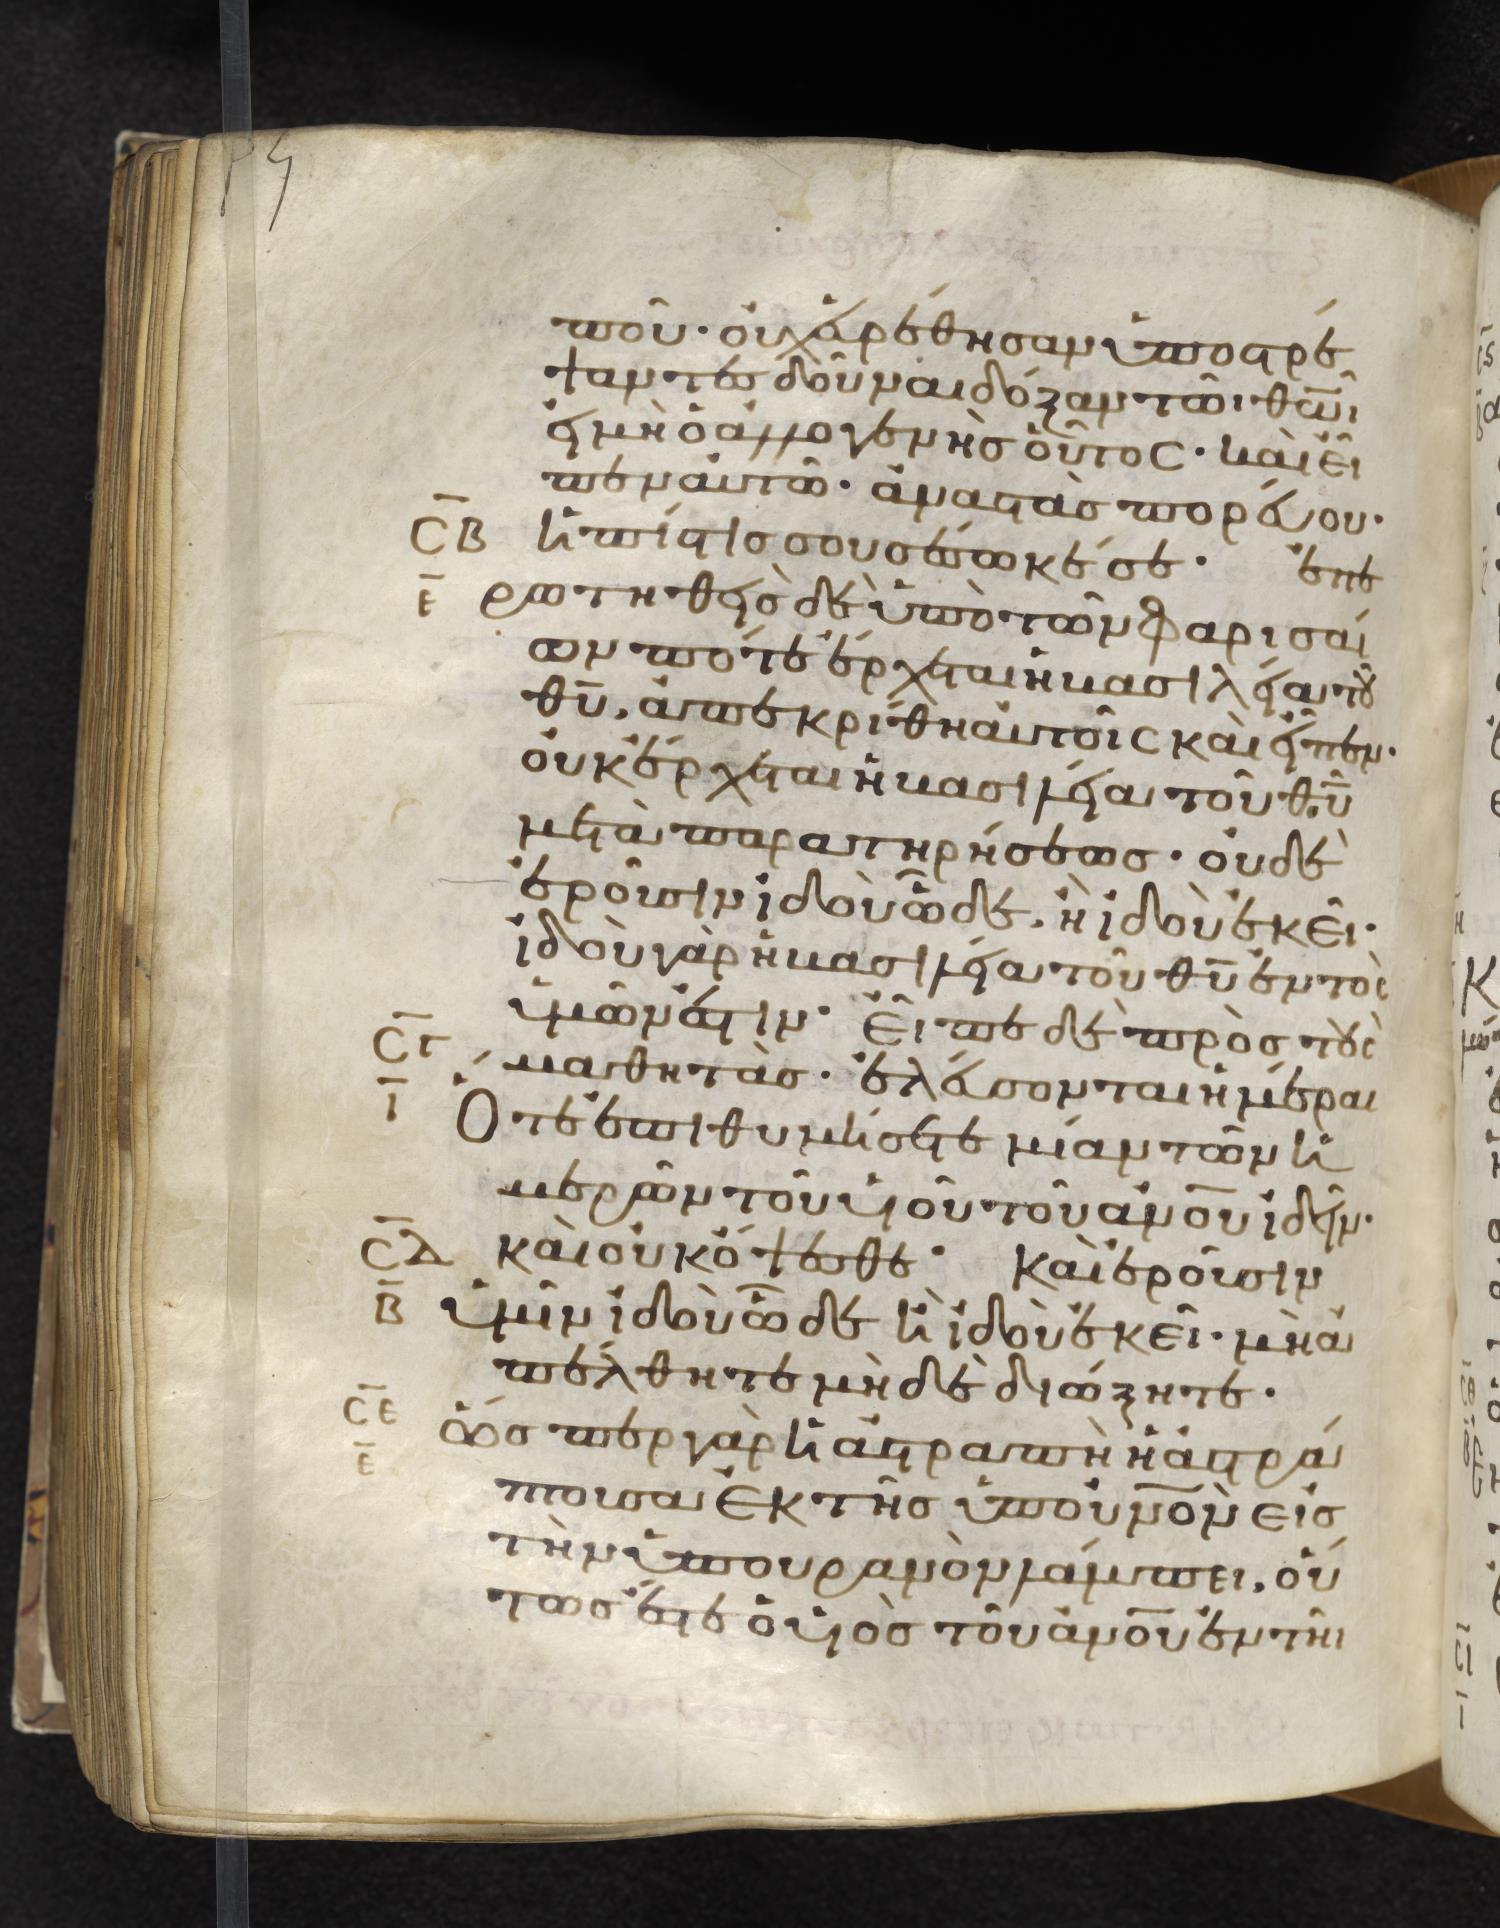 ποῦ· οὐχ ἑυρέθησαν ὑποστρέ
ψαντες δοῦναι δόξαν τῶι θω̅ι
εἰ μὴ ὁ ἀλλογενὴς οὗτος· καὶ εἶ
πεν αὐτῶ· ἀναστὰς πορεύου·
C̅B ἡ πίστις σου σέσωκέ σε· ἐπε
Ε̅ ρωτηθεὶς δὲ ὑπὸ τῶν φαρισαί
ων πότε ἔρχεται ἡ βασιλεία τοῦ
θυ̅, ἀπεκρίθη αὐτοῖς καὶ εἶπεν·
οὐκ ἔρχεται ἡ βασιλεία τοῦ θυ̅
μετὰ παρατηρήσεως· οὐδὲ
ἐροῦσιν ἰδοὺ ὧδε, ἢ ἰδοὺ ἐκεῖ·
ἰδοὺ γὰρ ἡ βασιλεία τοῦ θυ̅ ἐντὸς
ὑμῶν ἐστιν· εἶπε δὲ πρὸς τοὺς
C̅Γ μαθητὰς· ἐλεύσονται ἡμέραι
Ι̅ Ὅτε ἐπιθυμήσετε μίαν τῶν ἡ
μερῶν τοῦ υἱοῦ τοῦ ανο̅υ ἰδεῖν·
C̅Δ καὶ οὐκ ὄψεσθε· Καὶ ἐροῦσιν
Β̅ ὑμῖν ἰδοὺ ὧδε ἢ ἰδοὺ ἐκεῖ· μὴ ἀ
πέλθητε μὴ δὲ διώξητε·
C̅Ε ὥσπερ γὰρ ἡ ἀστραπὴ ἡ ἀστρά
Ε̅ πτουσα ἐκ τῆς ὑπ' οὐν̅ον εἰς
τὴν ὑπ' οὐρανὸν λάμπει, οὕ
τως ἔσται ὁ υἱὸς τοῦ ανο̅υ ἐν τῆι